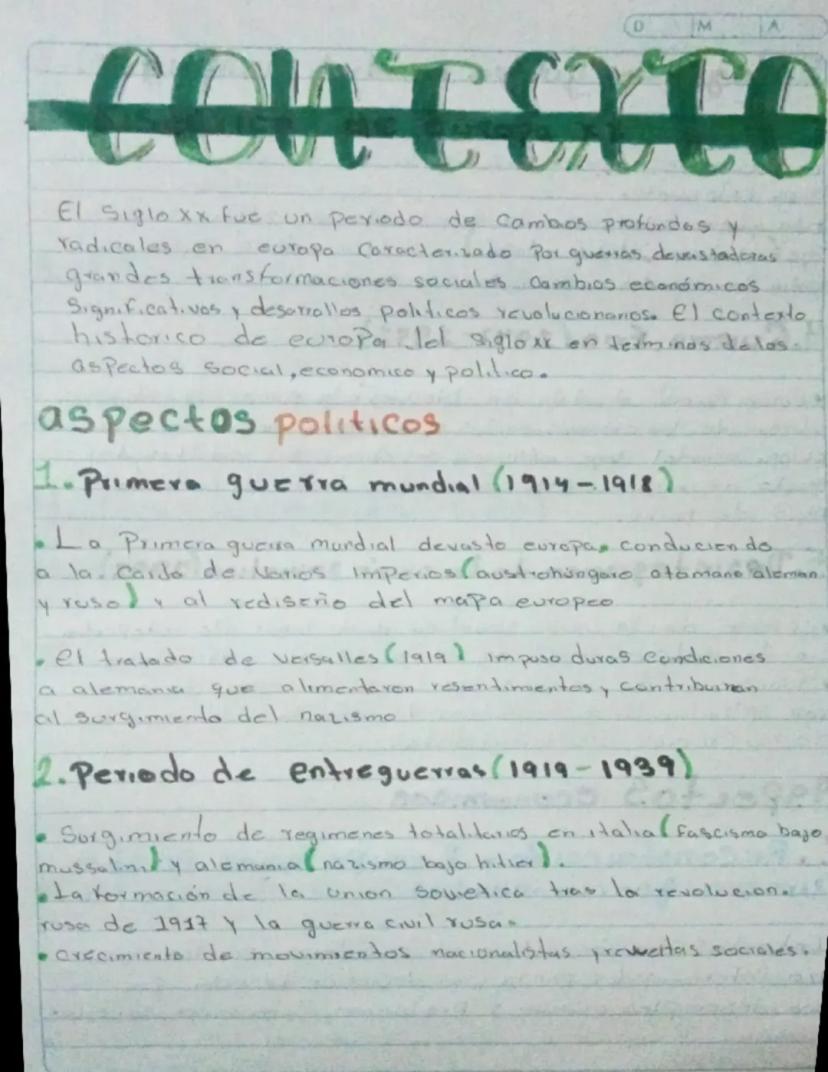 D M A
CONTEXTO
Historico de Europa XX
El Siglo xx fue un periodo de Cambios profundos y
radicales en europa Caracterizado Por guerras devastadoras
grandes transformaciones sociales Cambios económicos
Significativos y desarrollos politicos revolucionarios. El contexto
historico de europa del siglo xx en terminos de los
aspectos social, economico y politico.
aspectos politicos
1. Primera guerra mundial (1914-1918)
• La Primera guerra mundial devasto europa, conduciendo
a la Caida de Varios Imperios (austrohungaro otomano aleman
y ruso) y al rediseño del mapa europeo
• el tratado de versalles (1919) impuso duras condiciones
a alemania que alimentaron resentimientos y contribuiran
al surgimiento del nazismo
2. Periodo de entreguerras (1919-1939)
• Surgimiento de regimenes totalitarios en italia (fascismo bajo
mussolini) y alemania (nazismo bajo hitler).
• La formación de la union sovietica tras la revolucion.
rusa de 1917 y la guerra civil rusa.
• crecimiento de movimientos nacionalistas y revueltas sociales.